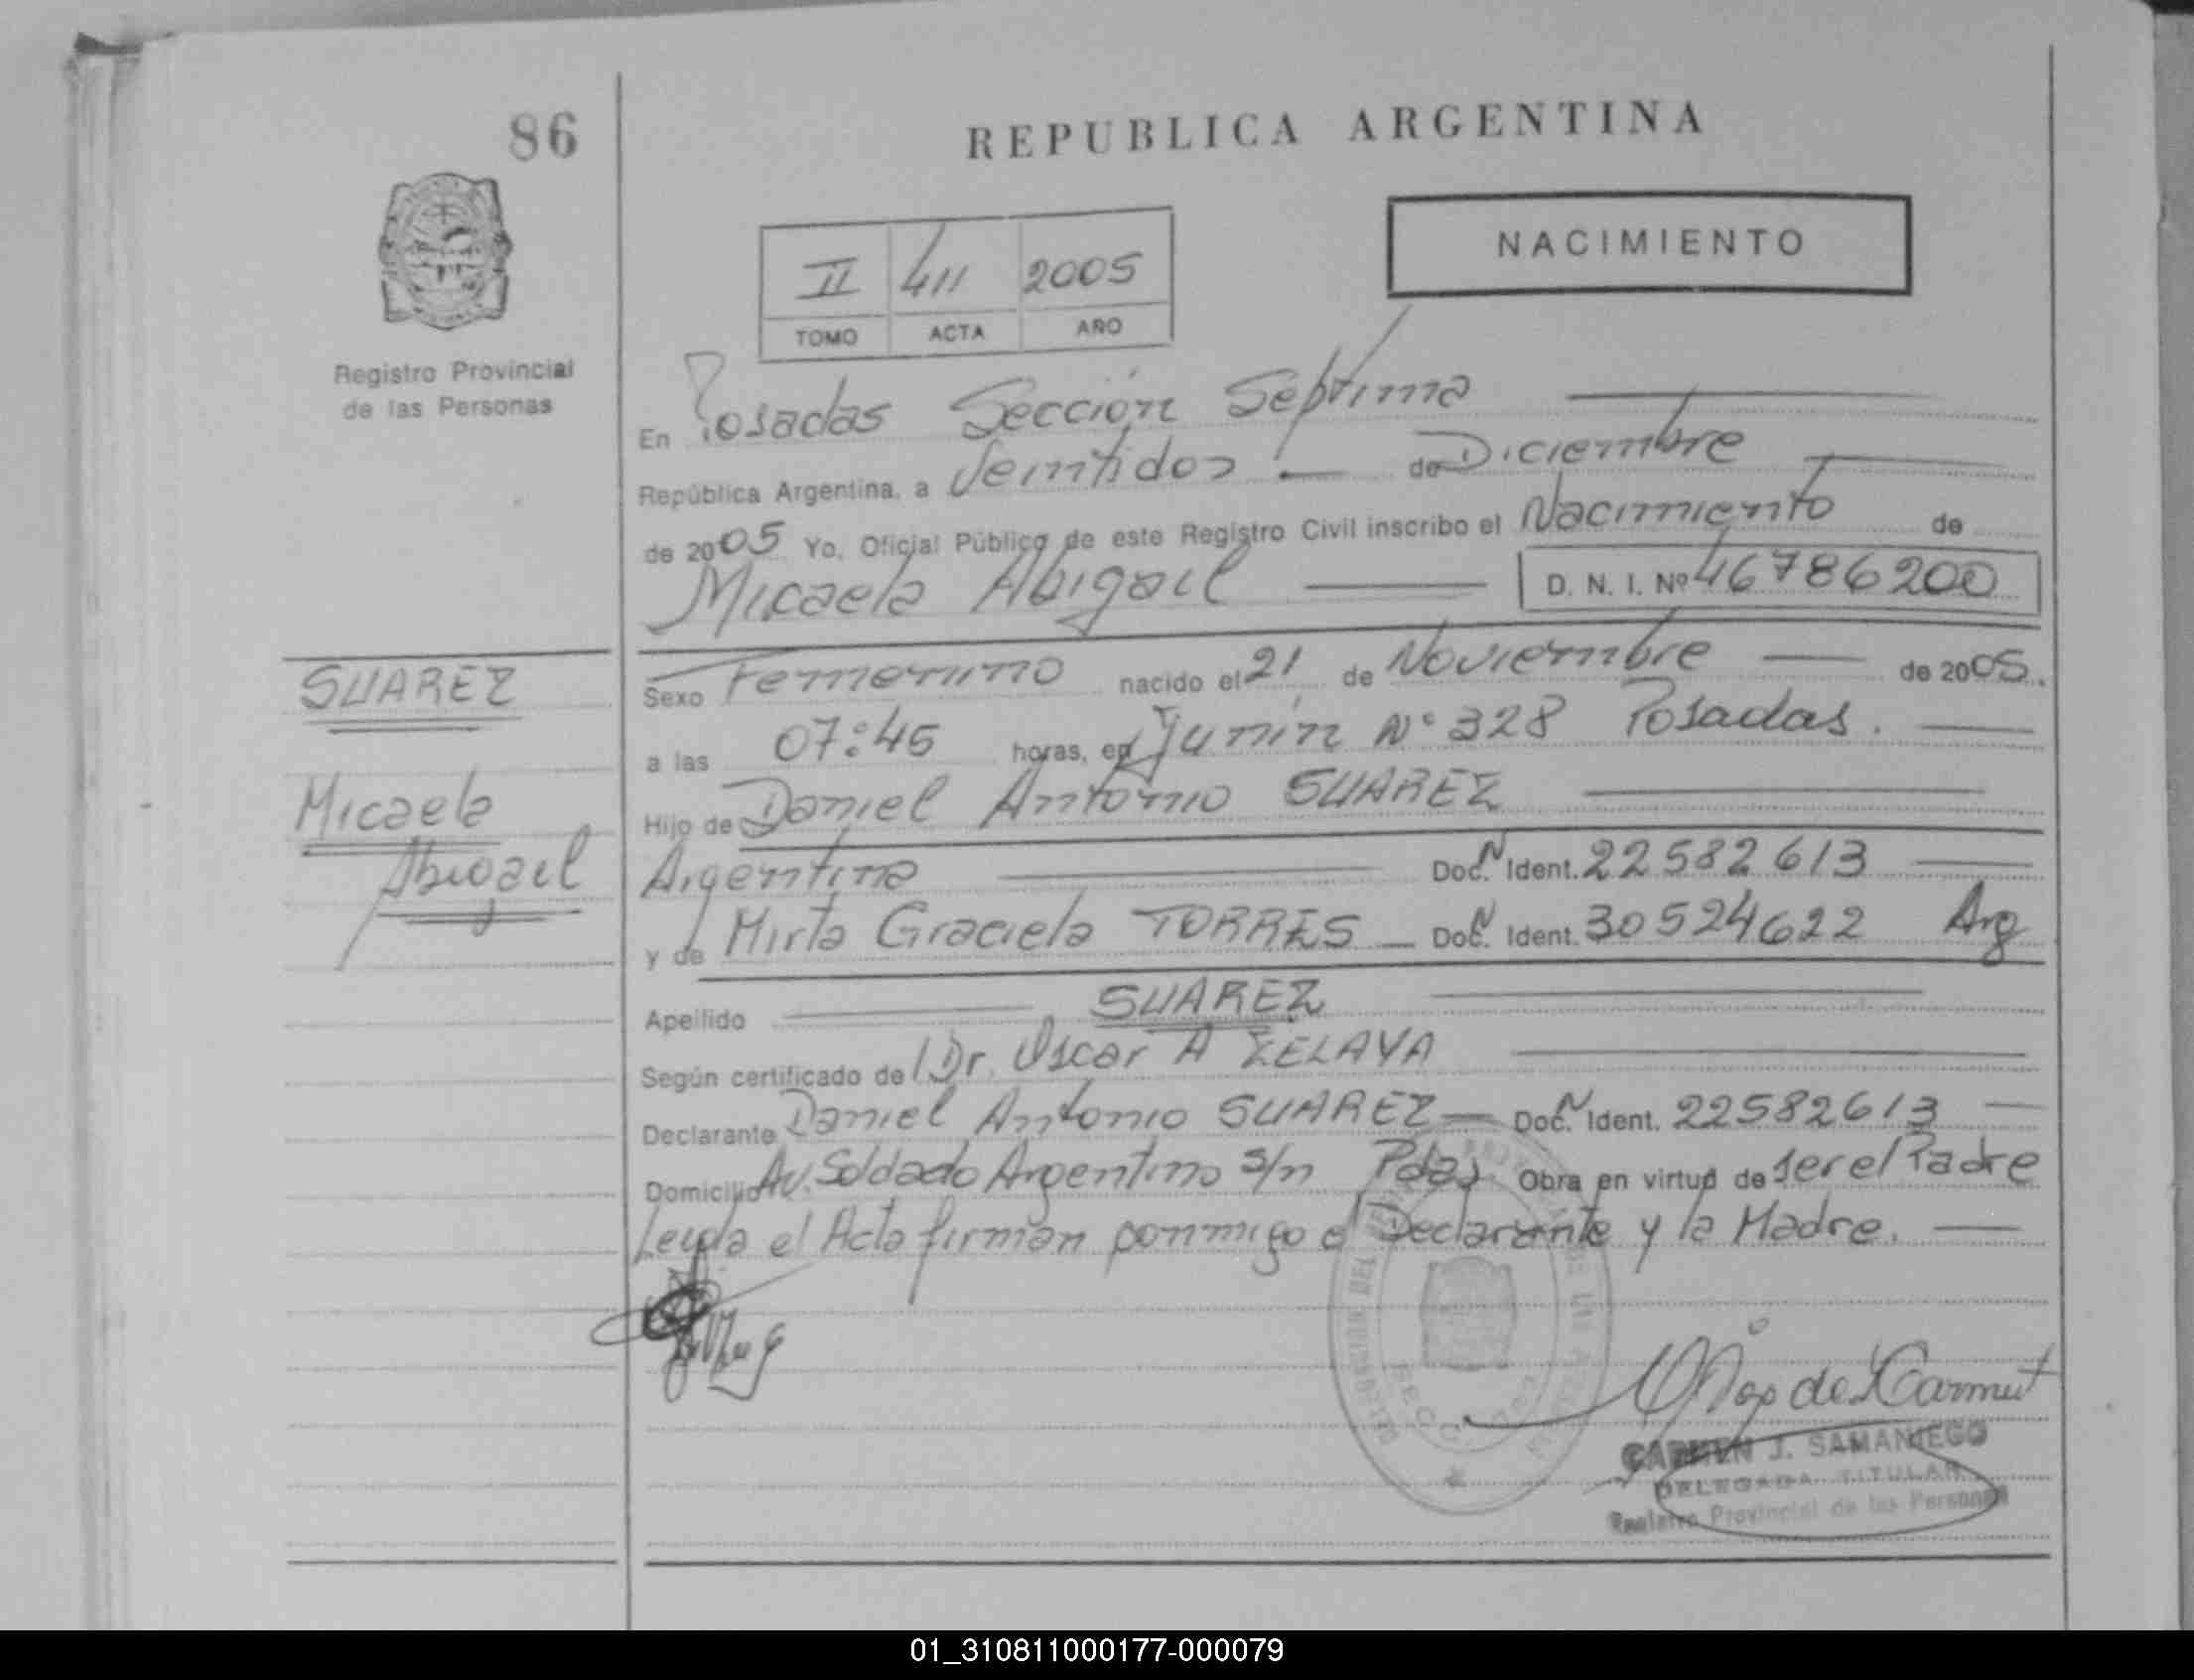 86
REPUBLICA ARGENTINA
NACIMIENTO
II 411 2005
TOMO ACTA AÑO
Registro Provincial
de las Personas
En Posadas Sección Septima
República Argentina, a Veintidos de Diciembre
de 2005 Yo, Oficial Público de este Registro Civil inscribo el Nacimiento de
Micaela Abigail D. N. I. Nº 46786200
SUAREZ
Micaela
Abigail
Sexo Femenino nacido el 21 de Noviembre de 2005.
a las 07:45 horas, en Junín Nº 328 Posadas.
Hijo de Daniel Antonio SUAREZ
Argentina Doc. N Ident. 22582613
y de Mirta Graciela TORRES Doc. N Ident. 30524622 Arg
Apellido SUAREZ
Según certificado de Dr. Oscar A ZELAYA
Declarante Daniel Antonio SUAREZ Doc. N Ident. 22582613
Domicilio Av. Soldado Argentino s/n Pdas Obra en virtud de ser el Padre
Leyda el Acta firman conmigo el Declarante y la Madre.
CARMEN J. SAMANIEGO
DELEGADA TITULAR
Registro Provincial de las Personas
01_310811000177-000079